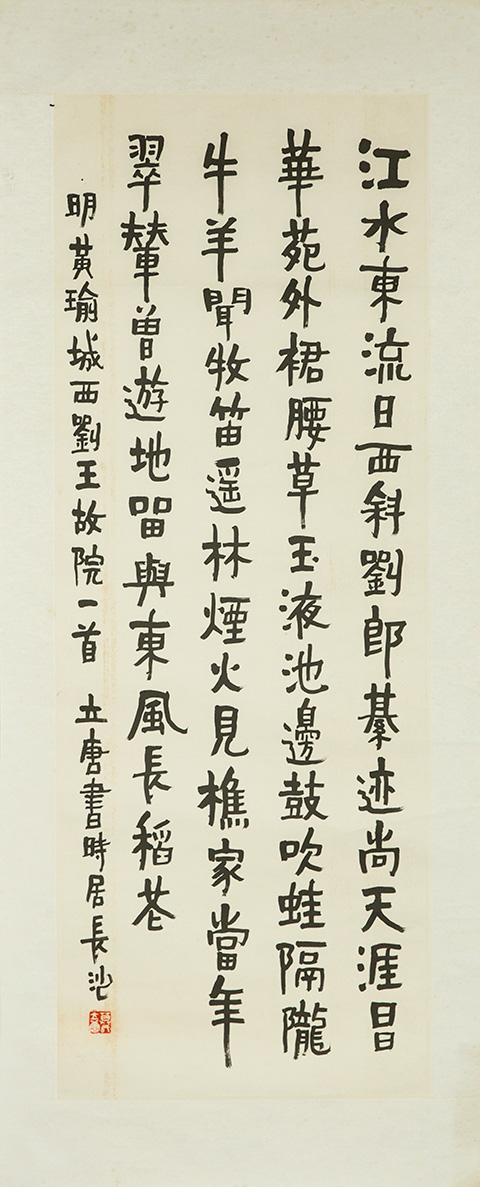 江水東流日西斜劉郎綦迹尚天涯昌
華苑外裙腰草玉液池邊鼓吹蛙隔隴
牛羊聞牧笛遥林煙火見樵家當年
翠輦曾遊地留與東風長稻芒
明黃瑜城西劉王故院一首 立唐書時居長沙